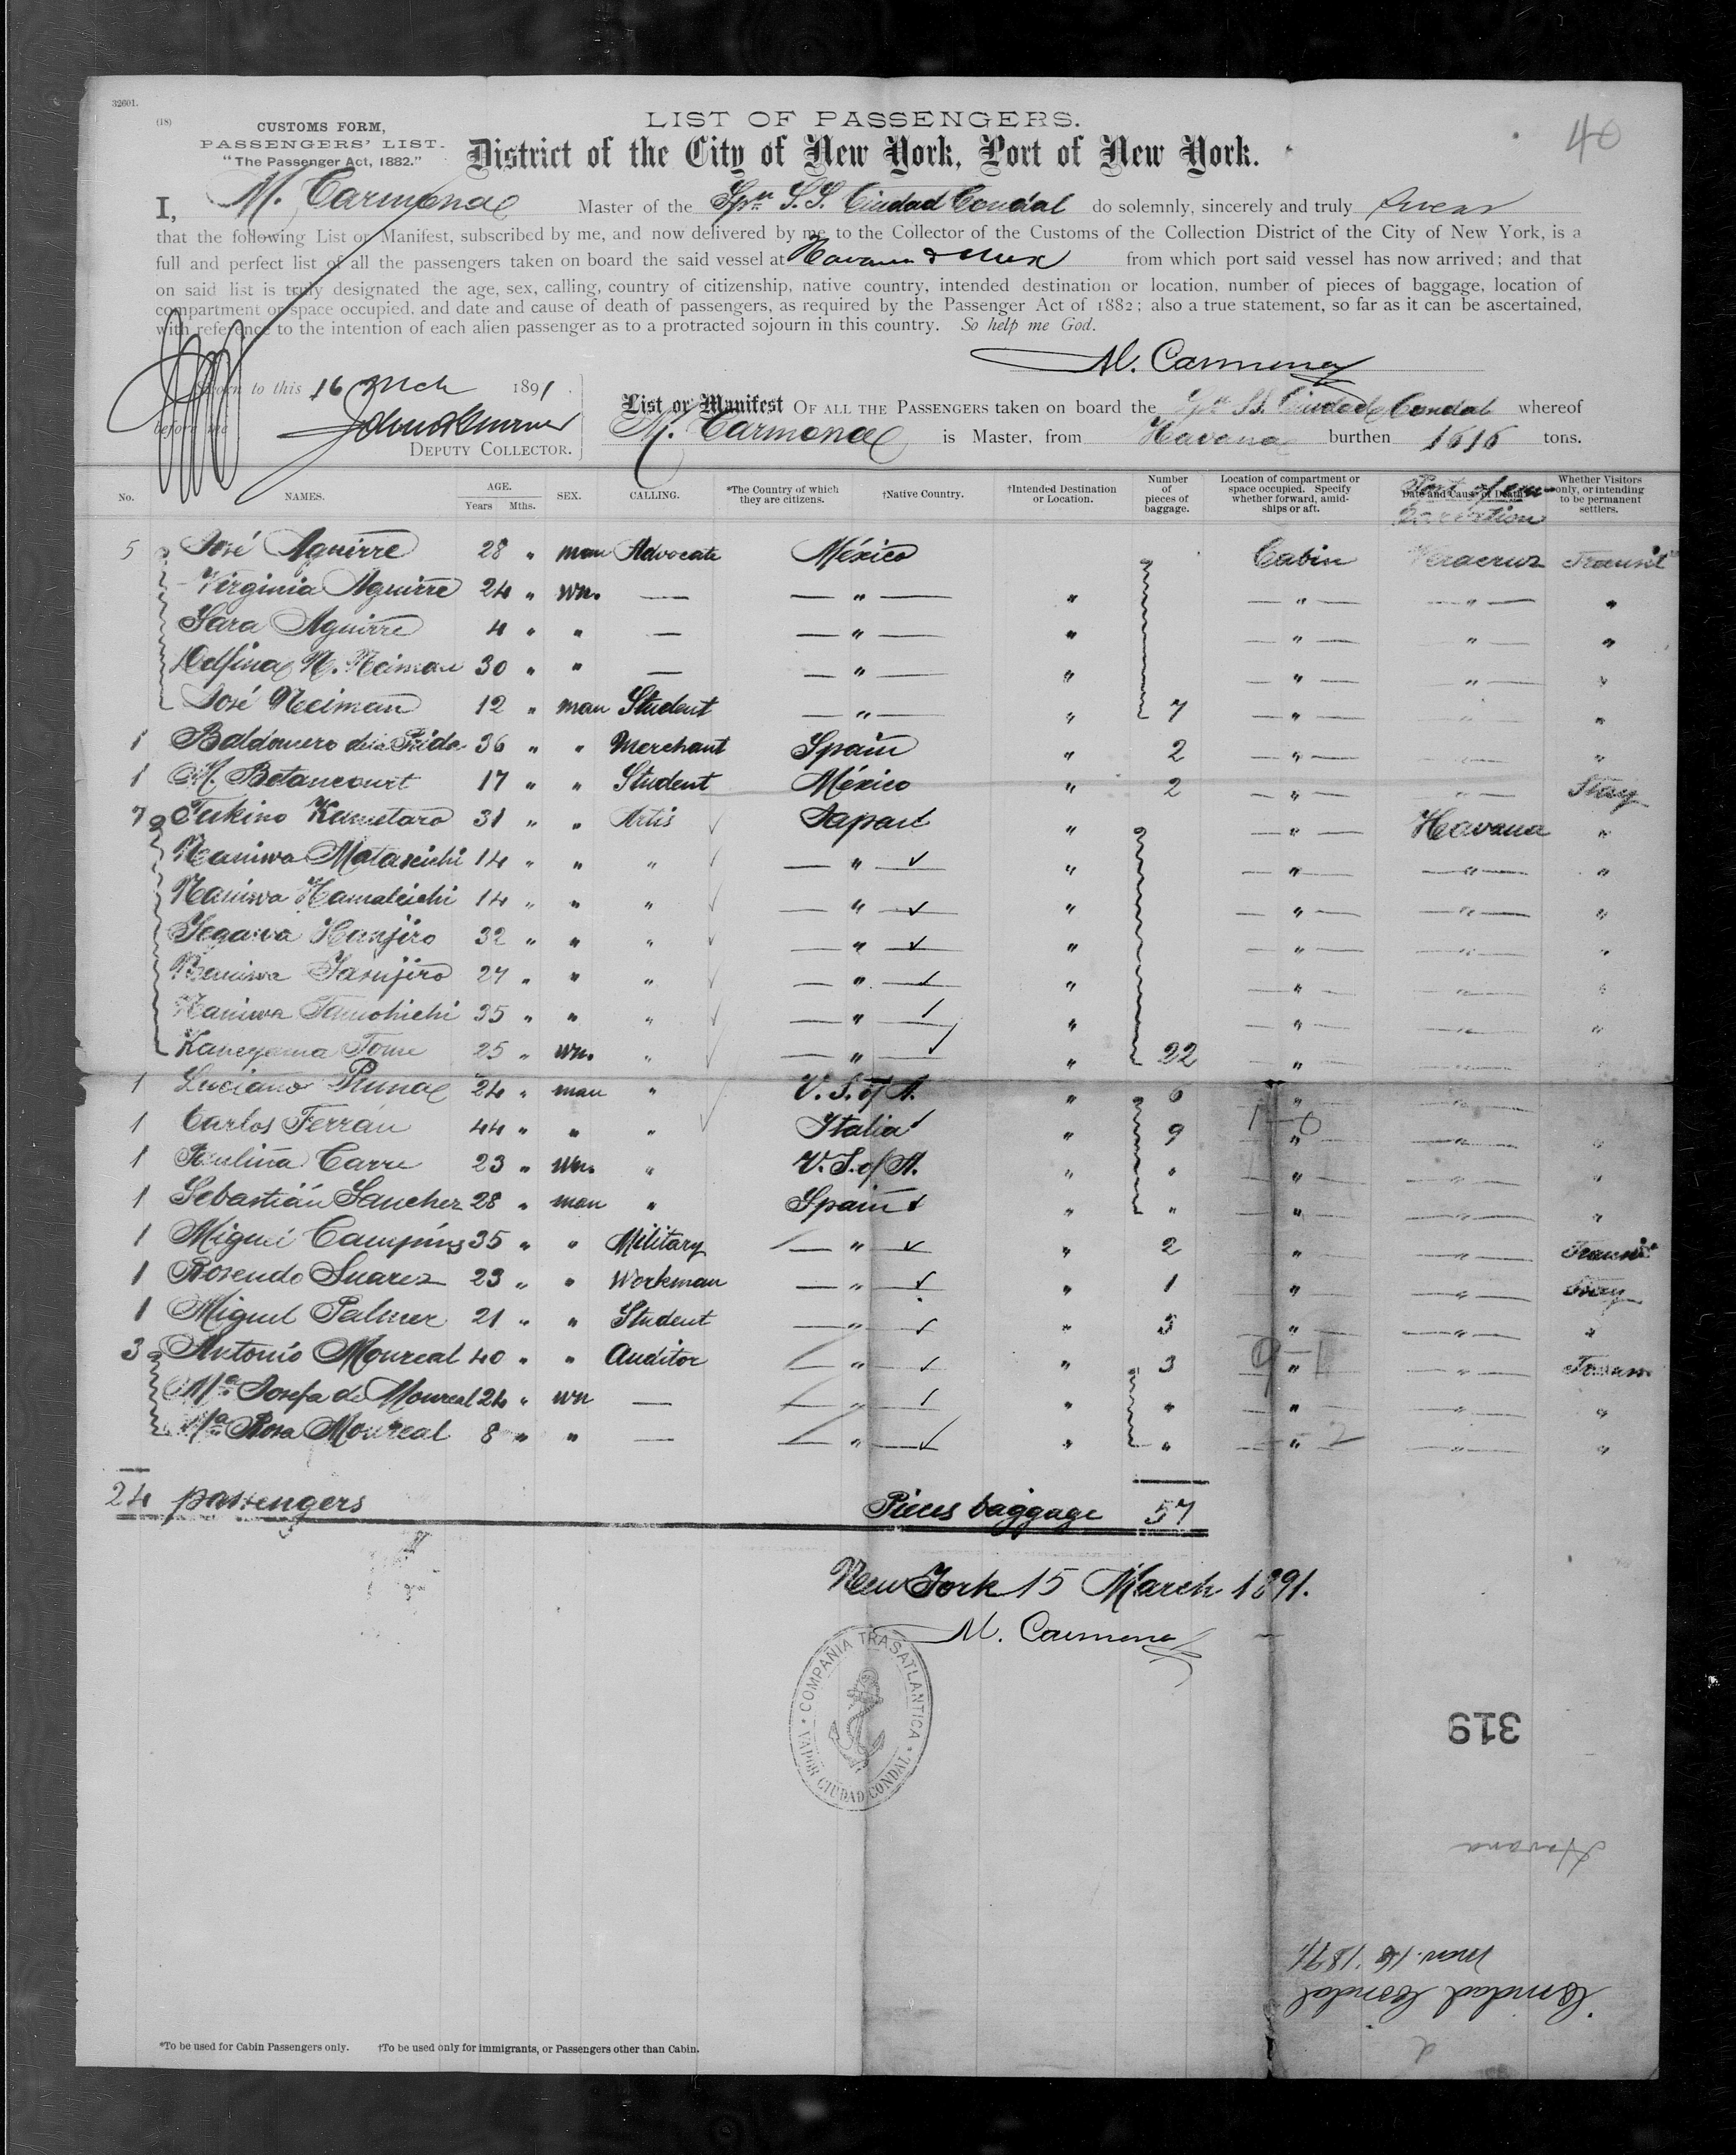 32601.
(18)
CUSTOMS FORM,
PASSENGERS' LIST.
"The Passenger Act, 1882."
LIST OF PASSENGERS.
District of the City of New York, Port of New York.
40
I, M. Carmona Master of the Spn S.S. Ciudad Condal do solemnly, sincerely and truly swear
that the following List or Manifest, subscribed by me, and now delivered by me to the Collector of the Customs of the Collection District of the City of New York, is a
full and perfect list of all the passengers taken on board the said vessel at Havana & Mex from which port said vessel has now arrived; and that
on said list is truly designated the age, sex, calling, country of citizenship, native country, intended destination or location, number of pieces of baggage, location of
compartment or space occupied, and date and cause of death of passengers, as required by the Passenger Act of 1882; also a true statement, so far as it can be ascertained,
with reference to the intention of each alien passenger as to a protracted sojourn in this country. So help me God.
M. Carmona
Sworn to this 16 Mch 1891
before me
DEPUTY COLLECTOR.
List or Manifest OF ALL THE PASSENGERS taken on board the Spn SS. Ciudad Condal whereof
M. Carmona is Master, from Havana burthen 1616 tons.
No. NAMES. AGE. Years Mths. SEX. CALLING. *The Country of which they are citizens. †Native Country. †Intended Destination or Location. Number of pieces of baggage. Location of compartment or space occupied. Specify whether forward, amidships or aft. Date and Cause of Death. Port of embarcation Whether Visitors only, or intending to be permanent settlers.
5 José Aguirre 28 " man Advocate México Cabin Veracruz Transit
Virginia Aguirre 24 " wn. — — " — " — " — — " — "
Sara Aguirre 4 " " — — " — " — " — — " — "
Delfina N. Neiman 30 " " — — " — " — " — — " — "
José Neiman 12 " man Student — " — " 7 — " — — " — "
1 Baldomero de la Prida 36 " " Merchant Spain " 2 — " — — " — "
1 M. Betancourt 17 " " Student México " 2 — " — — " — Stay
7 Tukino Kametaro 31 " " Artis Japan " — " — Havana "
Naniwa Mataseichi 14 " " " — " — " — " — — " — "
Naniwa Hamateichi 14 " " " — " — " — " — — " — "
Segawa Hanjiro 32 " " " — " — " — " — — " — "
Naniwa Sasujiro 27 " " " — " — " — " — — " — "
Naniwa Tamohichi 35 " " " — " — " — " — — " — "
Kaneyama Tome 25 " wn. " — " — " 22 — " — — " —
1 Luciano Pruna 24 " man " U.S. of A. " 6 — " — — " —
1 Carlos Ferrán 44 " " " Italia " 9 — " — — " — "
1 Paulina Carre 23 " wn. " U.S. of A. " " — " — — " — "
1 Sebastián Sanchez 28 " man " Spain " " — " — — " — "
1 Miguel Campins 35 " " Military — " — " 2 " — " — Transit
1 Rosendo Suarez 23 " " Workman — " — " 1 " — " — Stay
1 Miguel Palmer 21 " " Student — " — " 5 " — " — "
3 Antonio Monreal 40 " " Auditor — " — " 3 " — " — Transit
Ma Josefa de Monreal 24 " wn — — " — " " " — " — "
Ma Rosa Monreal 8 " " — — " — " " " — " — "
24 passengers Pieces baggage 57
New York 15 March 1891.
M. Carmona
COMPAÑIA TRASATLANTICA
VAPOR CIUDAD CONDAL
319
Havana
Mar. 16 1891
Ciudad Condal
*To be used for Cabin Passengers only. †To be used only for immigrants, or Passengers other than Cabin.